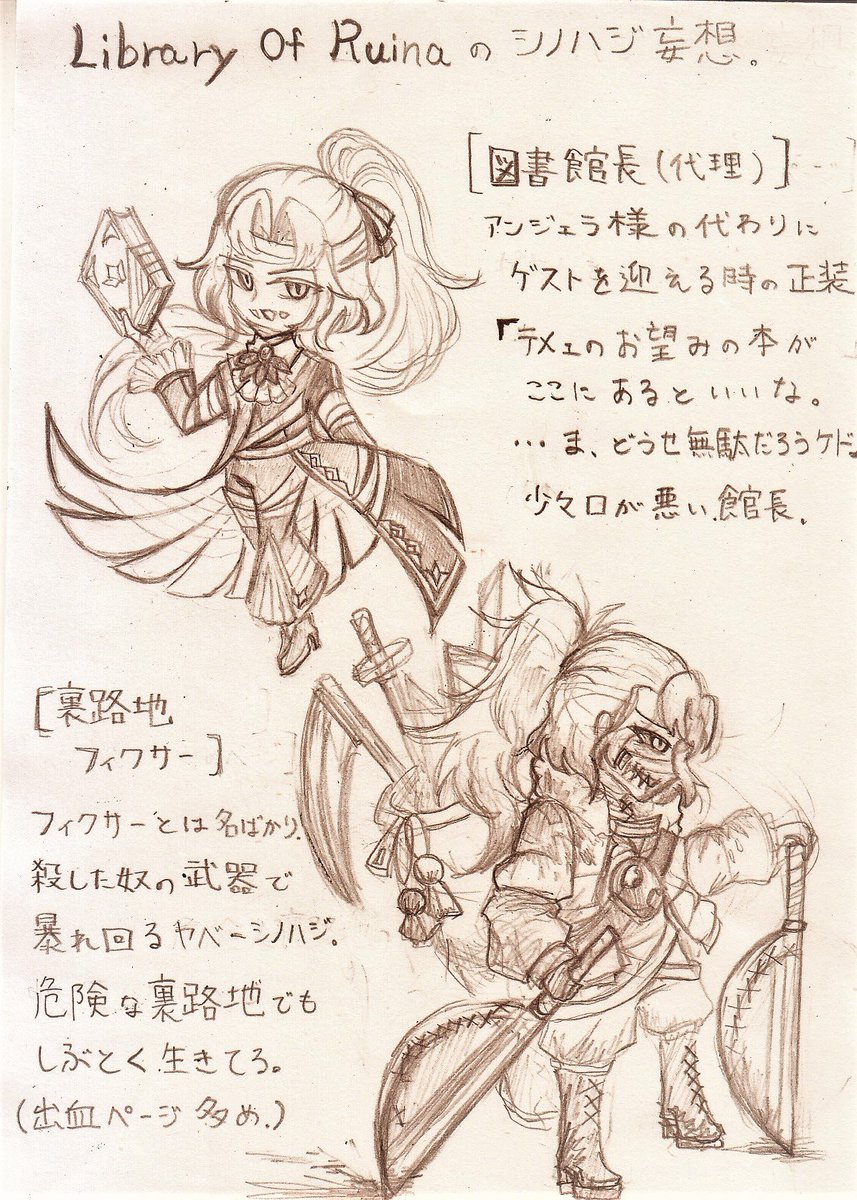 Library Of Ruinaの シノハジ妄想。
[図書館長(代理)]
アンジェラ様の代わりに
ゲストを迎える時の正装
「テメェのお望みの本が
ここにあるといいな。
…ま、どうせ無駄だろうケド」
少々口が悪い館長。
[裏路地
フィクサー]
フィクサーとは名ばかり。
殺した奴の武器で
暴れ回るヤベーシノハジ。
危険な裏路地でも
しぶとく生きてろ。
(出血ページ多め.)